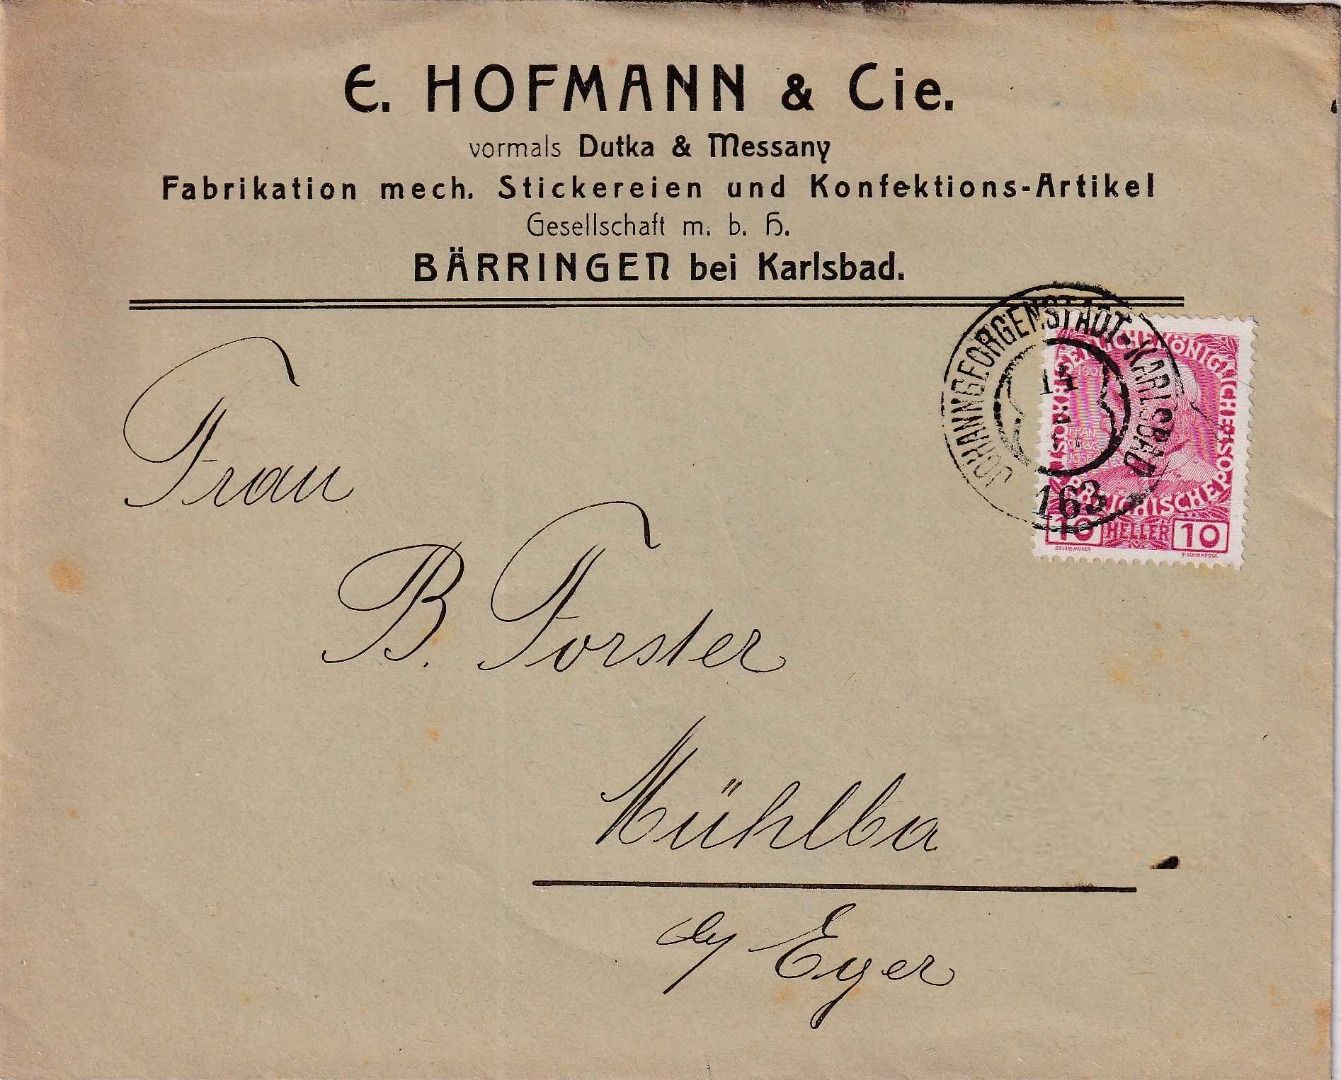 E. HOFMANN & Cie.
vormals Dutka & Messany
Fabrikation mech. Stickereien und Konfektions-Artikel
Gesellschaft m. b. H.
BÄRRINGEN bei Karlsbad.
JOHANNGEORGENSTADT-KARLSBAD
14
163
KAISERLICHE KÖNIGLICHE
ÖSTERREICHISCHE POST
10 HELLER 10
Frau
B. Forster
Mühlba
Eger